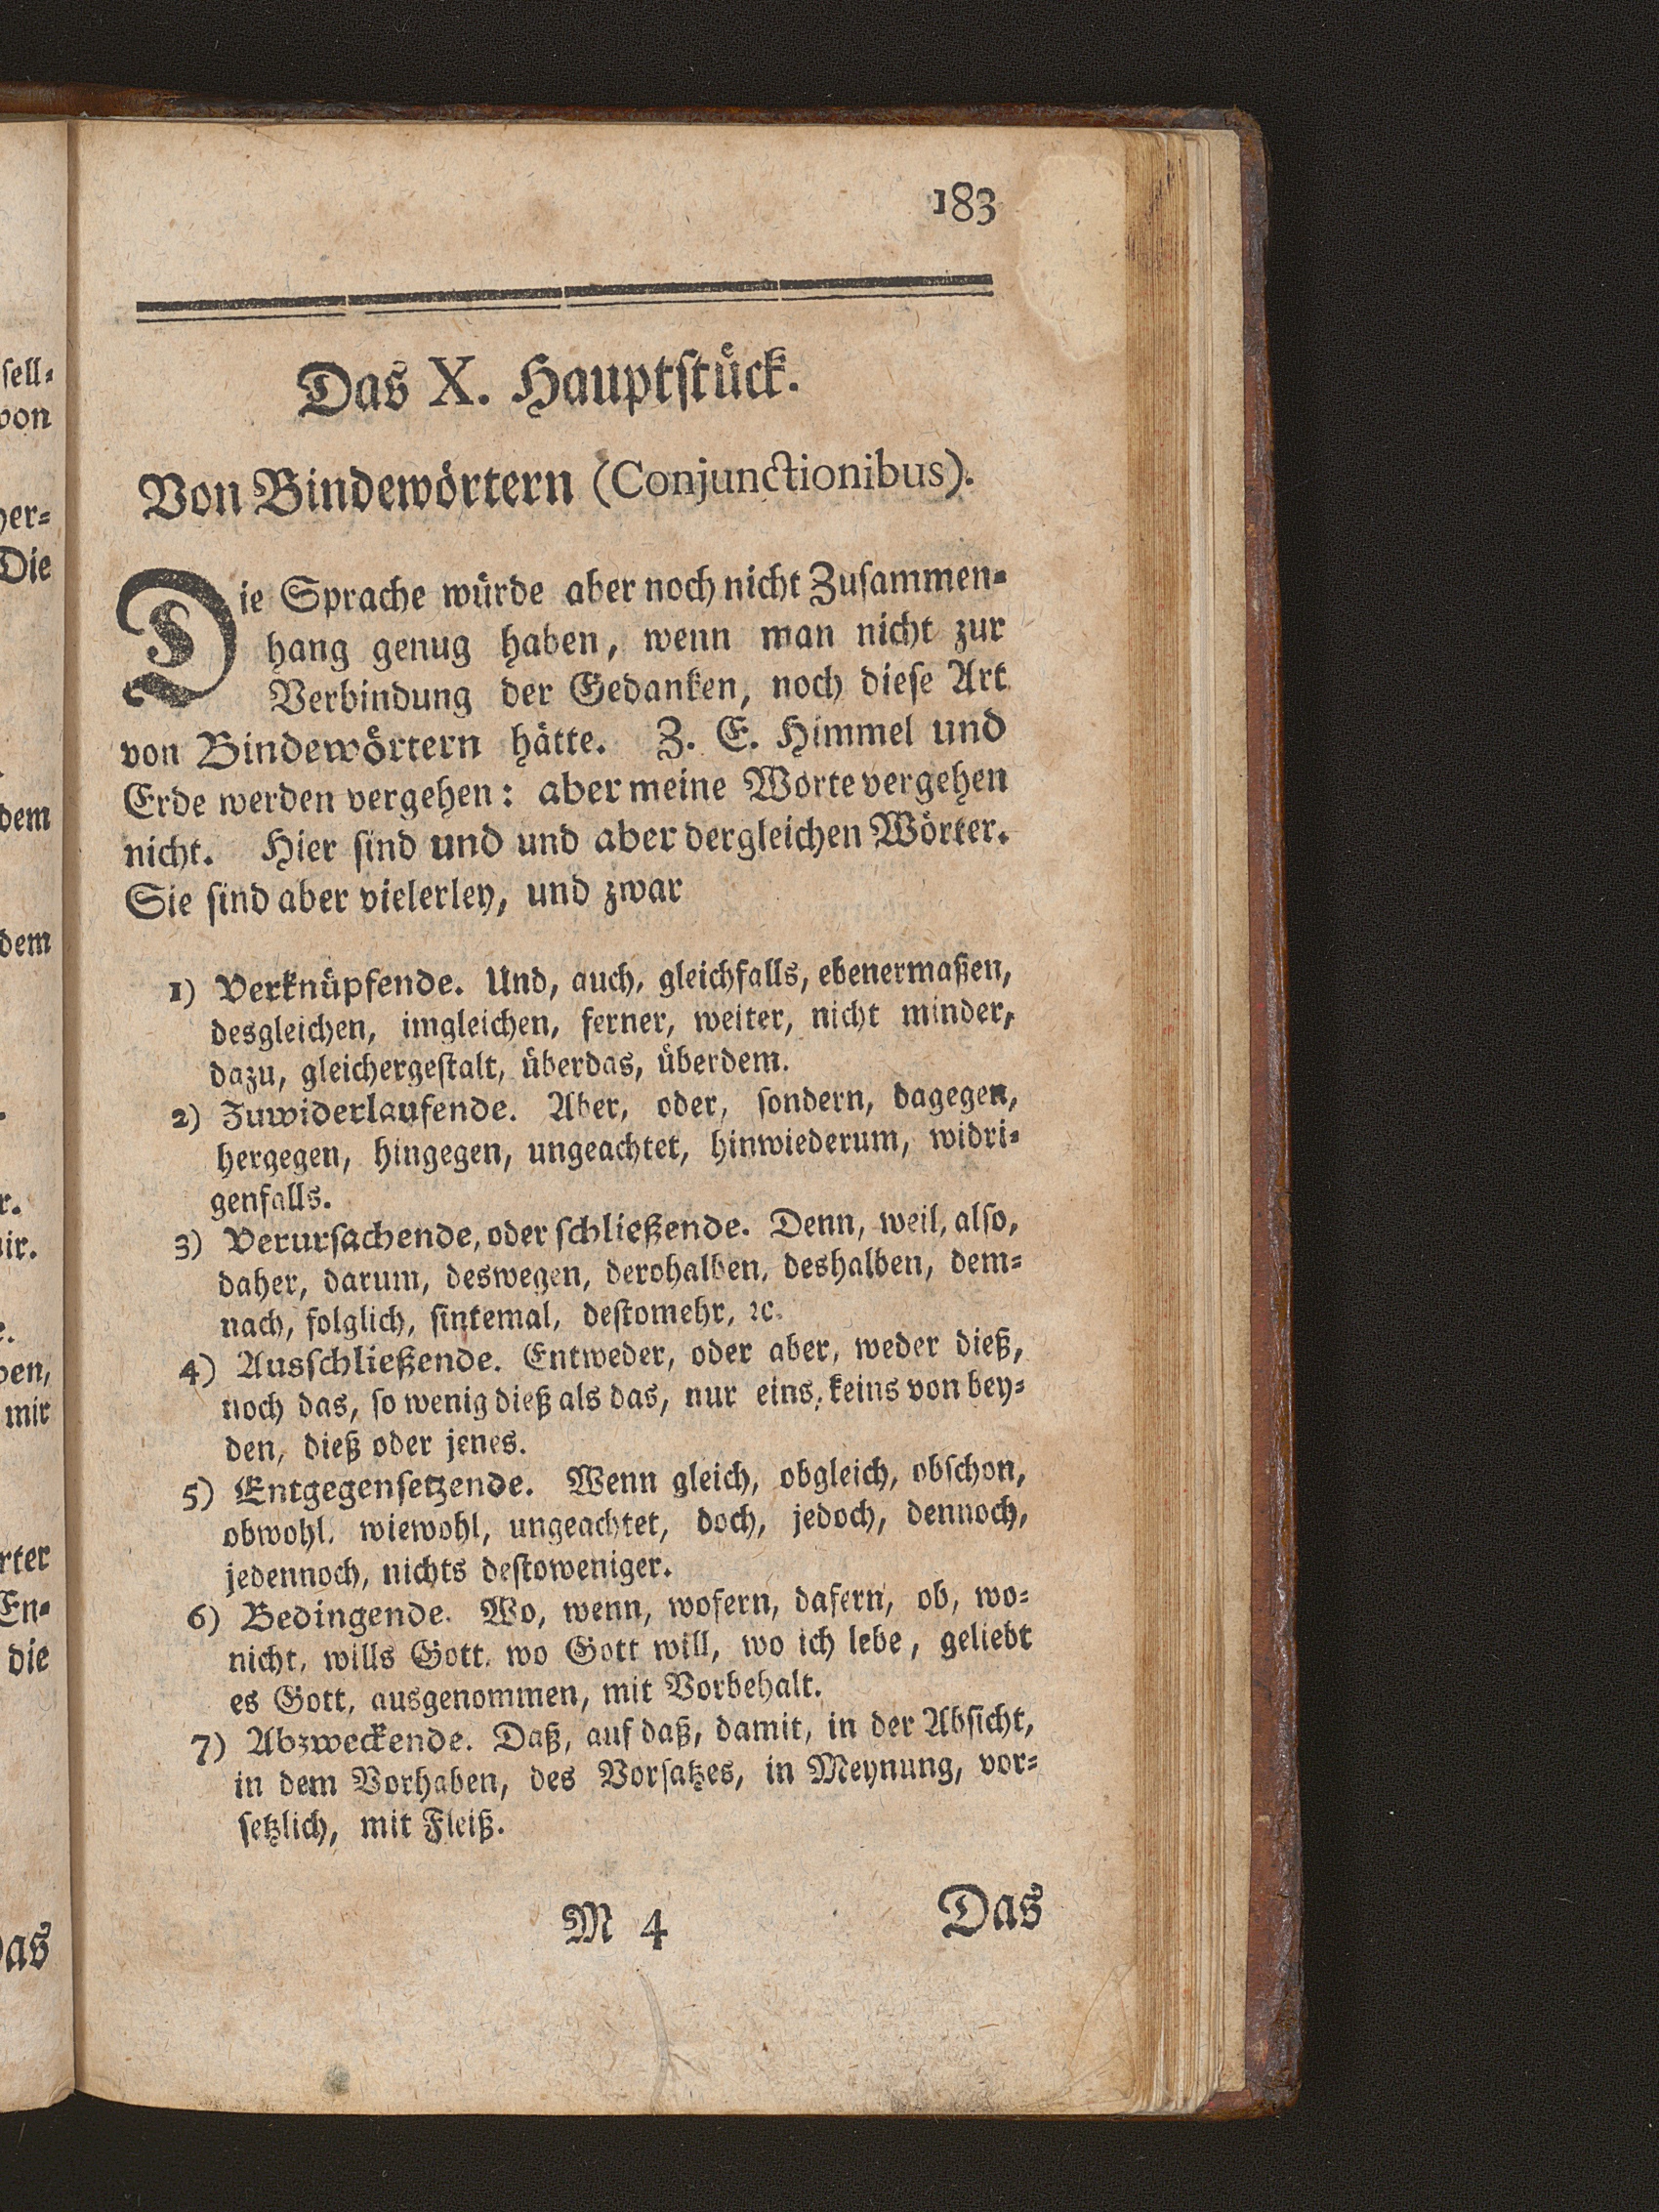 183
Das X. Hauptſtuͤck.
Von Bindewoͤrtern (Conjunctionibus).
Die Sprache wuͤrde aber noch nicht Zuſammen-
hang genug haben, wenn man nicht zur
Verbindung der Gedanken, noch dieſe Art
von Bindewoͤrtern haͤtte. Z. E. Himmel und
Erde werden vergehen: aber meine Worte vergehen
nicht. Hier ſind und und aber dergleichen Woͤrter.
Sie ſind aber vielerley, und zwar
1) Verknuͤpfende. Und, auch, gleichfalls, ebenermaßen,
desgleichen, imgleichen, ferner, weiter, nicht minder,
dazu, gleichergeſtalt, uͤberdas, uͤberdem.
2) Zuwiderlaufende. Aber, oder, ſondern, dagegen,
hergegen, hingegen, ungeachtet, hinwiederum, widri-
genfalls.
3) Verurſachende, oder ſchließende. Denn, weil, alſo,
daher, darum, deswegen, derohalben, deshalben, dem-
nach, folglich, ſintemal, deſtomehr, ꝛc.
4) Ausſchließende. Entweder, oder aber, weder dieß,
noch das, ſo wenig dieß als das, nur eins, keins von bey-
den, dieß oder jenes.
5) Entgegenſetzende. Wenn gleich, obgleich, obſchon,
obwohl, wiewohl, ungeachtet, doch, jedoch, dennoch,
jedennoch, nichts deſtoweniger.
6) Bedingende. Wo, wenn, wofern, dafern, ob, wo-
nicht, wills Gott, wo Gott will, wo ich lebe, geliebt
es Gott, ausgenommen, mit Vorbehalt.
7) Abzweckende. Daß, auf daß, damit, in der Abſicht,
in dem Vorhaben, des Vorſatzes, in Meynung, vor-
ſetzlich, mit Fleiß.
M 4
Das